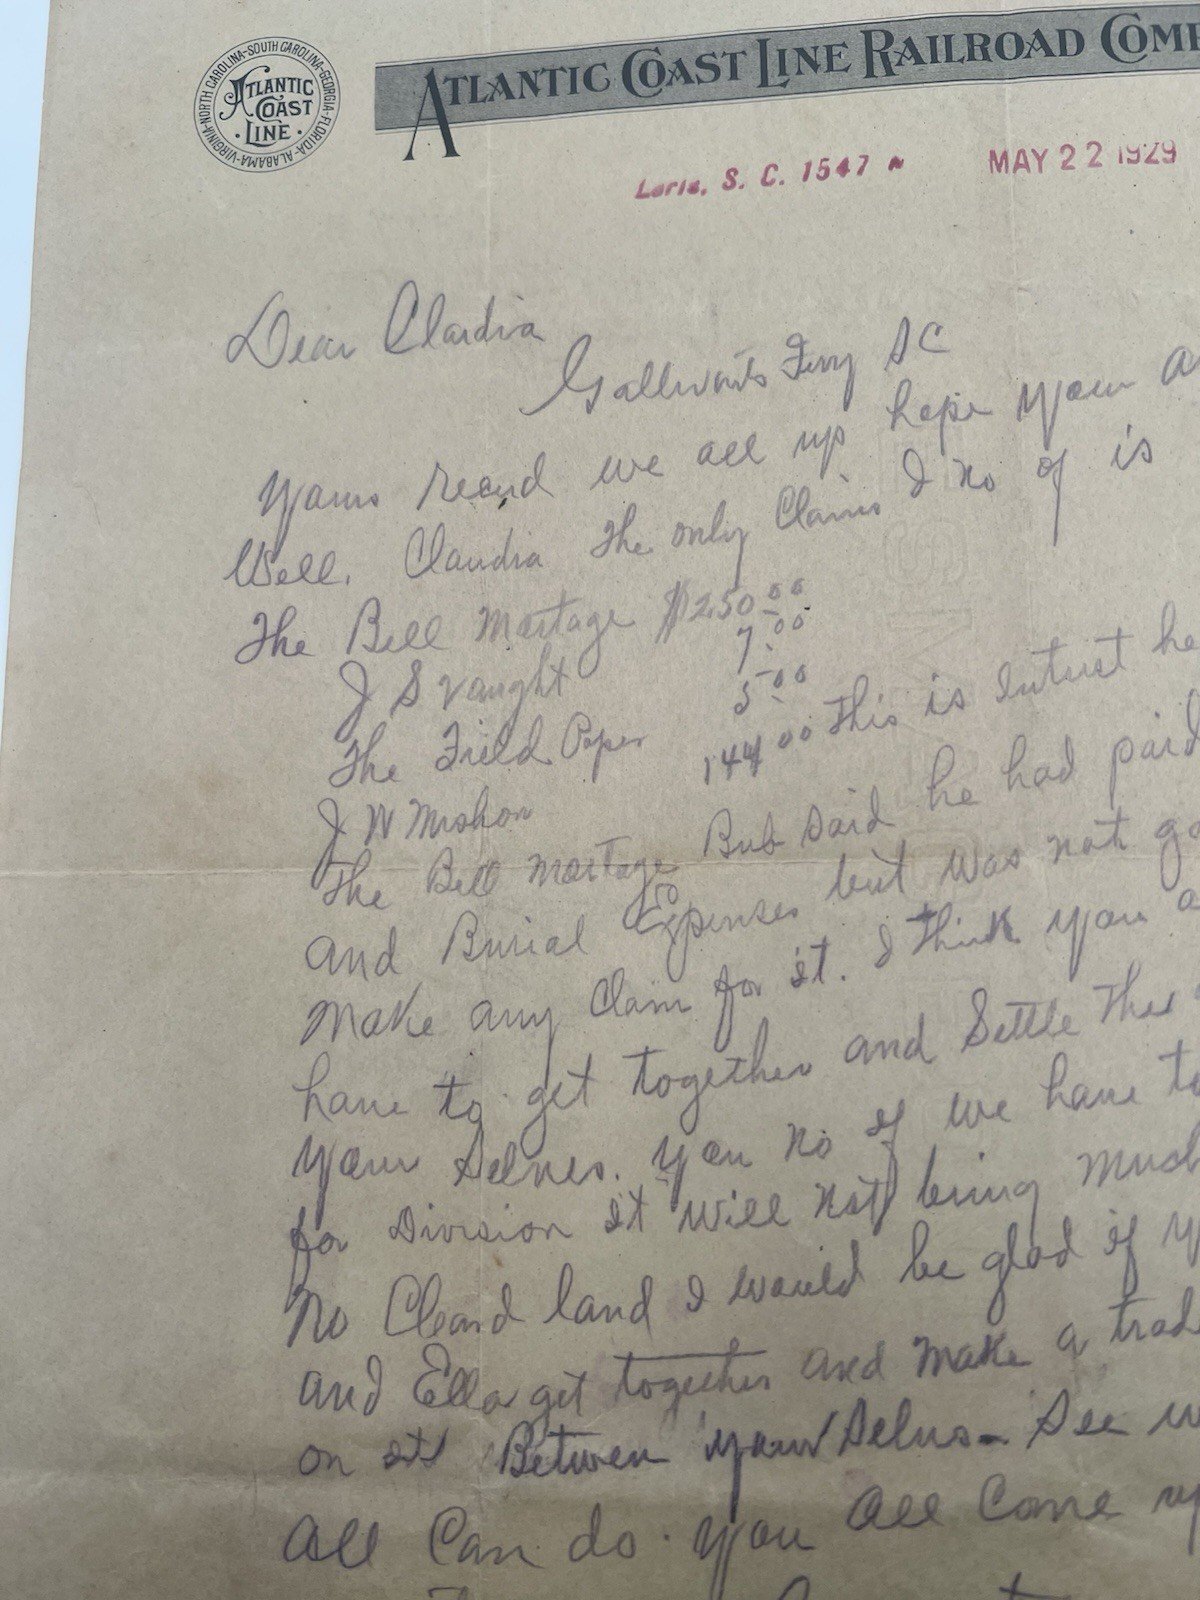 VIRGINIA-NORTH CAROLINA-SOUTH CAROLINA-GEORGIA-FLORIDA-ALABAMA-
ATLANTIC
COAST
· LINE ·
ATLANTIC COAST LINE RAILROAD COMP
Loris, S. C. 1547
MAY 22 1929
Dear Claudia
Ferry SC
yours recevd we all up hope your a
Well. Claudia the only Claims I no of is
The Bell Mortage $250.00
J S Vaught 7.00
The Field Paper 5.00
J W Mishoe 144.00 This is Intrust he
The Bell Mortage Bub Said he had paid
and Burial Expenses but was not go
Make any Claim for it. I think you a
have to get together and Settle This
your Selves. you no if we have to
for Division it will not bring much
No Cleard land I would be glad if y
and Ella get together and Make a trad
on it Between your Selvs - See w
All Can do. you all Come up